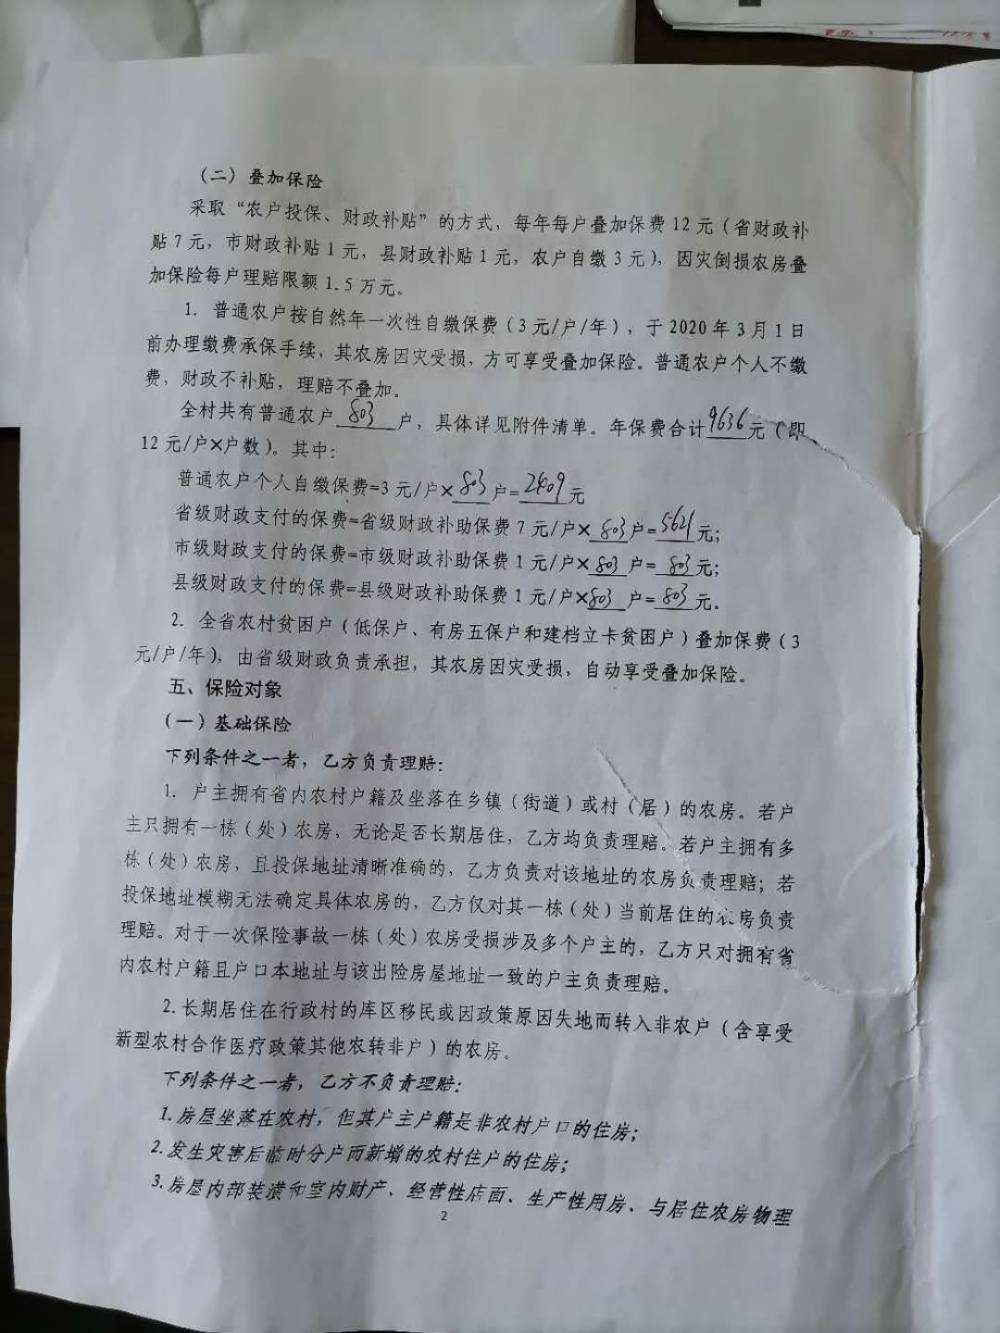 （二）叠加保险
采取“农户投保、财政补贴”的方式，每年每户叠加保费12元（省财政补
贴7元，市财政补贴1元，县财政补贴1元，农户自缴3元），因灾倒损农房叠
加保险每户理赔限额1.5万元。
1. 普通农户按自然年一次性自缴保费（3元/户/年），于2020年3月1日
前办理缴费承保手续，其农房因灾受损，方可享受叠加保险。普通农户个人不缴
费，财政不补贴，理赔不叠加。
全村共有普通农户803户，具体详见附件清单。年保费合计9636元（即
12元/户×户数）。其中：
普通农户个人自缴保费=3元/户×803户=2409元
省级财政支付的保费=省级财政补助保费7元/户×803户=5621元；
市级财政支付的保费=市级财政补助保费1元/户×803户=803元；
县级财政支付的保费=县级财政补助保费1元/户×803户=803元。
2. 全省农村贫困户（低保户、有房五保户和建档立卡贫困户）叠加保费（3
元/户/年），由省级财政负责承担，其农房因灾受损，自动享受叠加保险。
五、保险对象
（一）基础保险
下列条件之一者，乙方负责理赔：
1. 户主拥有省内农村户籍及坐落在乡镇（街道）或村（居）的农房。若户
主只拥有一栋（处）农房，无论是否长期居住，乙方均负责理赔。若户主拥有多
栋（处）农房，且投保地址清晰准确的，乙方负责对该地址的农房负责理赔；若
投保地址模糊无法确定具体农房的，乙方仅对其一栋（处）当前居住的农房负责
理赔。对于一次保险事故一栋（处）农房受损涉及多个户主的，乙方只对拥有省
内农村户籍且户口本地址与该出险房屋地址一致的户主负责理赔。
2.长期居住在行政村的库区移民或因政策原因失地而转入非农户（含享受
新型农村合作医疗政策其他农转非户）的农房。
下列条件之一者，乙方不负责理赔：
1.房屋坐落在农村，但其户主户籍是非农村户口的住房；
2.发生灾害后临时分户而新增的农村住户的住房；
3.房屋内部装潢和室内财产、经营性店面、生产性用房、与居住农房物理
2